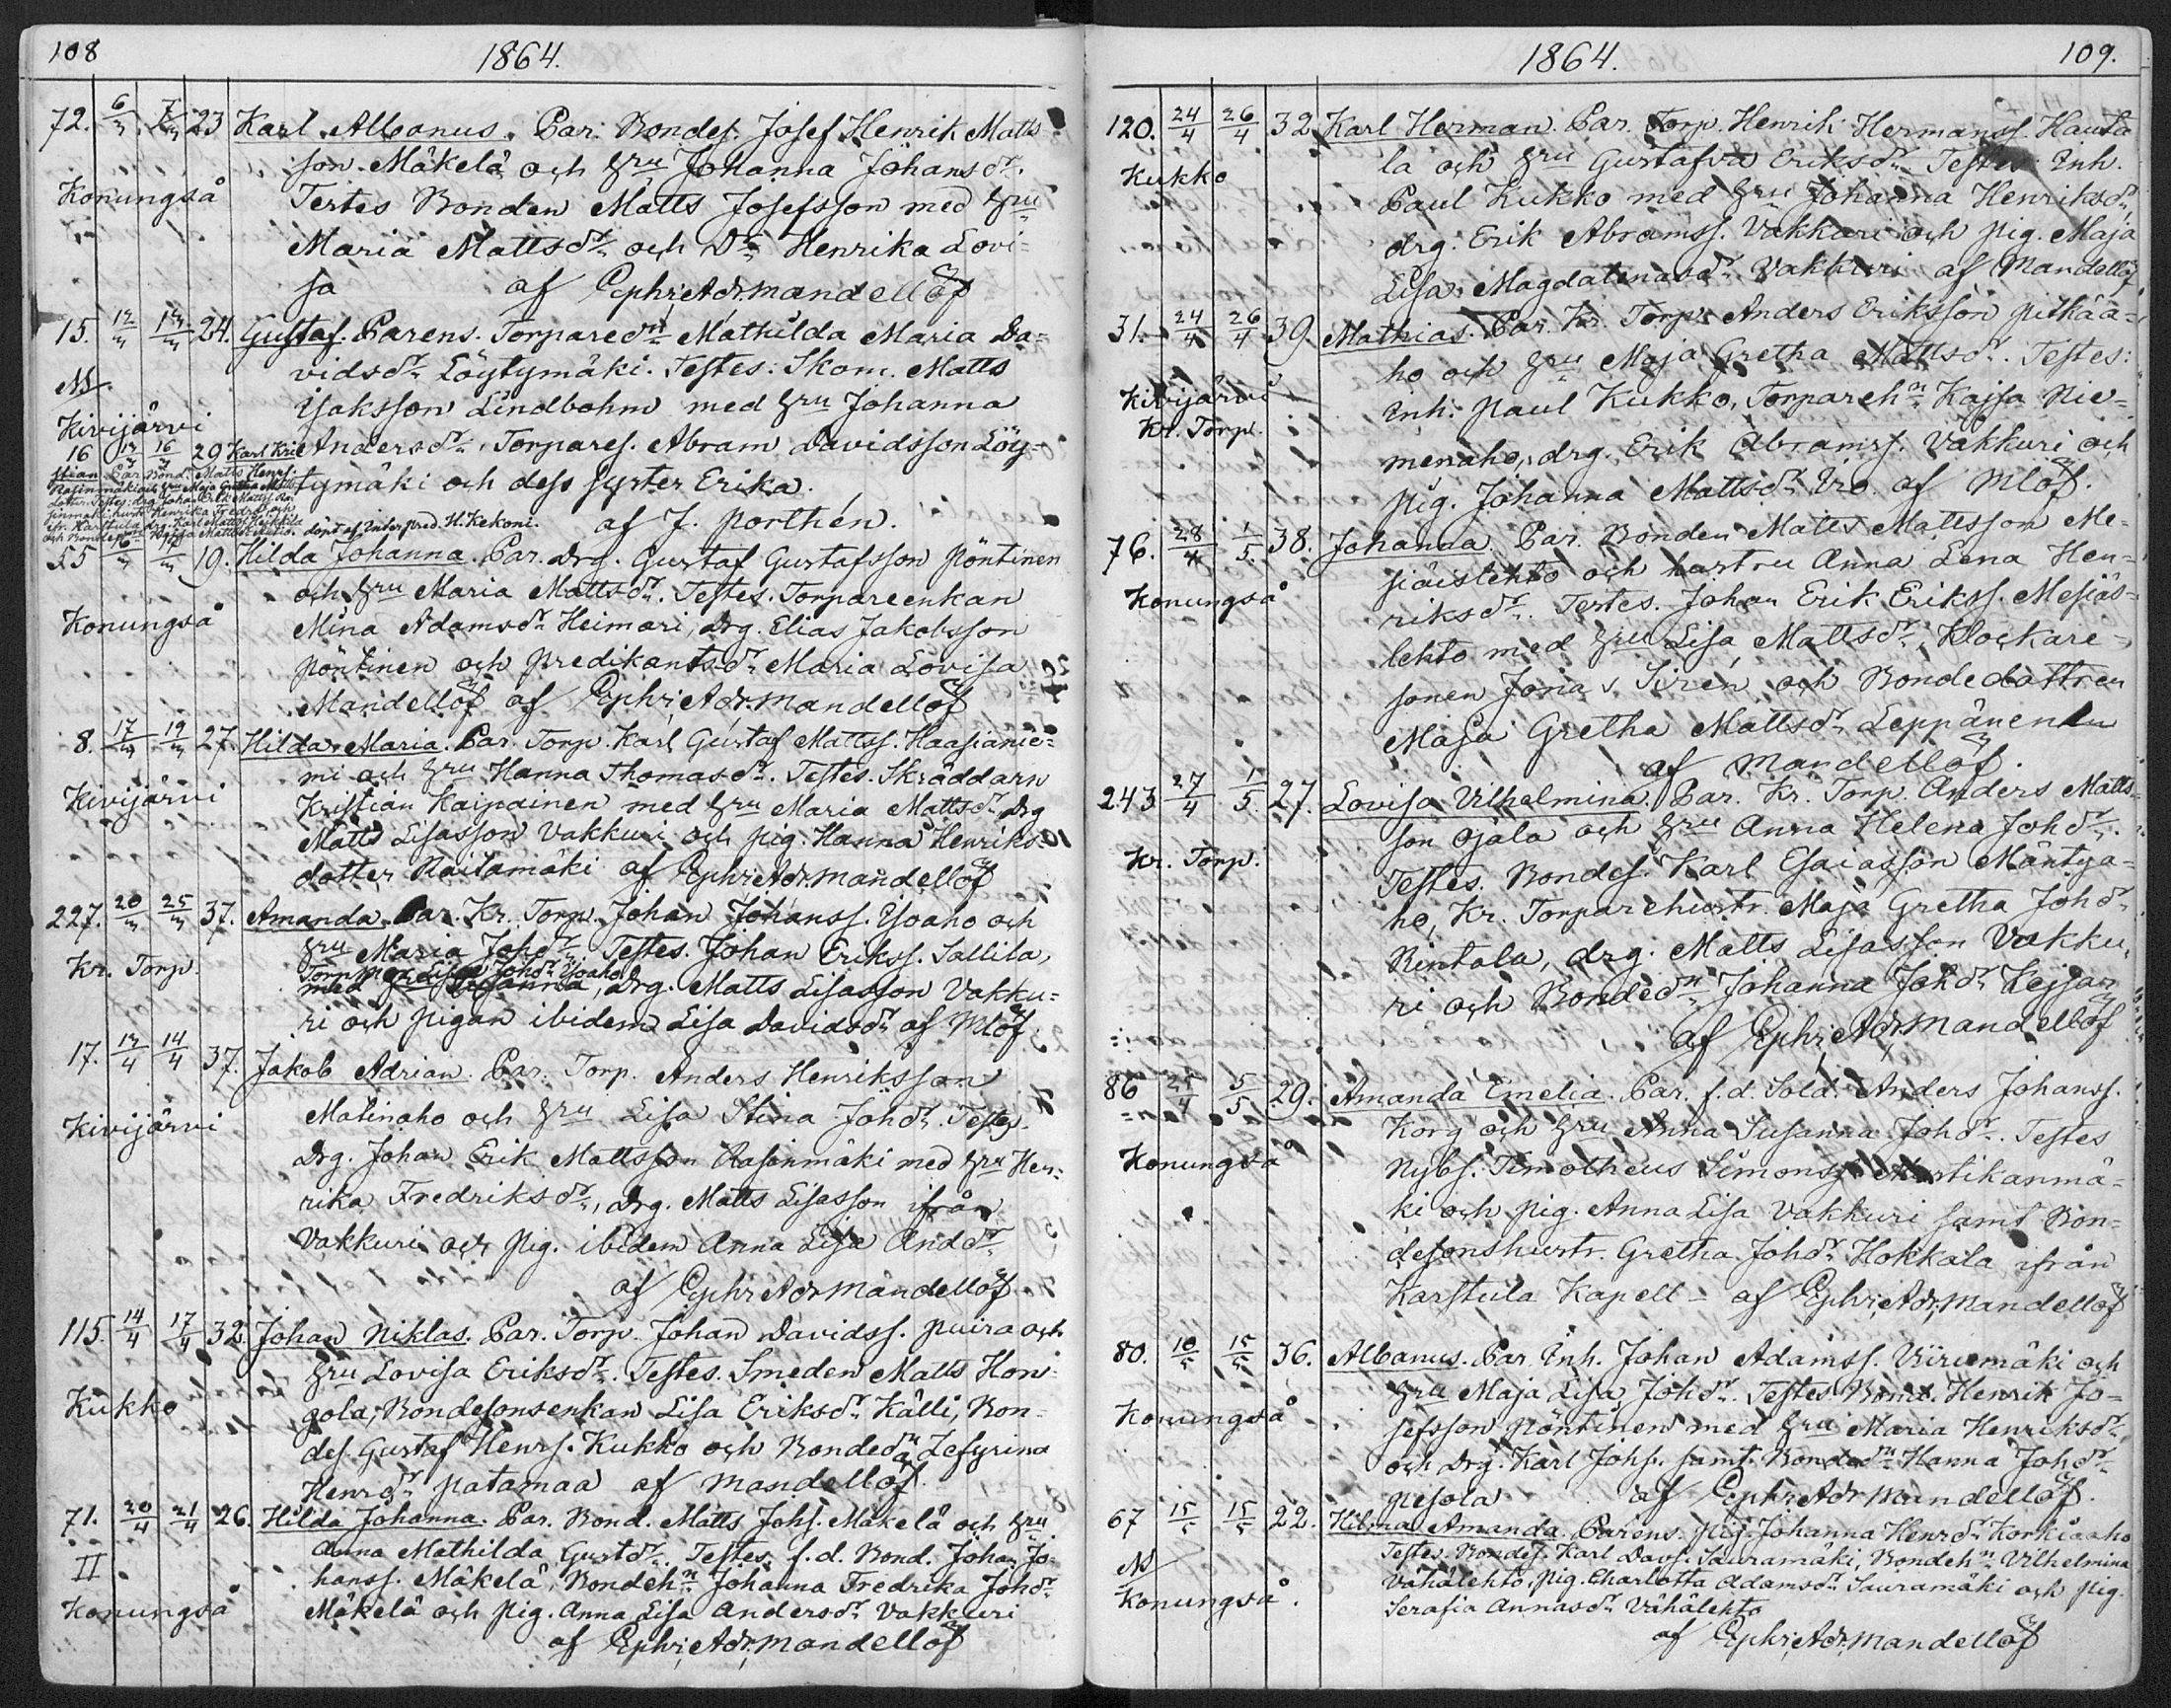 108
1864.
72. 6/3 7/3 23 Karl Albanus. Par. Bondes. Josef Henrik Matts
son Mäkelä och hru Johanna Johansdr.
Konungså Testes Bonden Matts Josefsson med hru
Maria Mattsdr och Dr Henrika Lovi=
sa af Ephr. Adr. Mandellöf
15. 12/3 13/3 24. Gustaf. Parens. Torparedn Mathilda Maria Da=
vidsdr Löytymäki. Testes: Skom. Matts
Isaksson Lindbohm med hru Johanna
Kivijärvi
Andersdr, Torpares. Abram Davidsson Löy=
tymäki och dess syster Erika.
af J. Porthén.
16 13/3 16/3 29 Karl Kri
stian Par. Bond. Matts Henrs.
Rasinmäki och hru Maja Gretha Matts
dotter. Testes: drg. Johan Erik Matts. Ra
sinmäki hustr. Henrika Fredrd. och
ifr. Karstula drg. Karl Matts. Heikkilä
döpt af Interpred. H. Kekoni.
55 19. Hilda Johanna. Par. Drg. Gustaf Gustafsson Pöntinen
och hru Maria Mattsdr. Testes. Torpareenkan
Konungså Mina Adamsdr Heimari, Drg. Elias Jakobsson
Pöntinen och predikantsdr Maria Lovisa
Mandellöf af Ephr. Adr. Mandellöf
8. 17/3 19/3 27. Hilda Maria. Par. Torp. Karl Gustaf Mattss. Haasianie=
mi och hru Hanna Thomasdr. Testes. Skräddarn
Kivijärvi Kristian Kaipainen med hru Maria Mattsdr Drg
Matts Lisasson Vakkuri och pig. Hanna Henriks
dotter Raitamäki af Ephr. Adr. Mandellöf
227. 20/3 25/3 37. Amanda. Par. Kr. Torp. Johan Johanss. Isoaho och
hru Maria Johdr. Testes. Johan Erikss. Sallila,
Kr. Torp. Torp. Lisa Johdr Isoaho
med hru Susanna, Drg. Matts Lisasson Vakku=
ri och pigan ibidem Lisa Davidsdr af Mlöf.
17. 13/4 14/4 37. Jakob Adrian. Par. Torp. Anders Henriksson
Kivijärvi Matinaho och hru Lisa Stina Johdr. Testes.
Drg. Johan Erik Mattsson Rasinmäki med hru Hen=
rika Fredriksdr, drg. Matts Lisasson ifrån
Vakkuri och pig. ibidem Anna Lisa Anddr
af Ephr. Adr. Mandellöf
115. 14/4 17/4 32. Johan Niklas. Par. Torp. Johan Davidss. Puira och
hru Lovisa Eriksdr. Testes. Smeden Matts Hon=
Kukko gola, Bondesonsenkan Lisa Eriksdr Källi, Bon=
des. Gustaf Henrs. Kukko och Bondedn Zefyrina
Henrdr Patamaa af Mandellöf.
71. 20/4 21/4 26. Hilda Johanna. Par. Bond. Matts Johs. Mäkelä och hru
Anna Mathilda Gustdr. Testes. f.d. Bond. Johan Jo=
II hanss. Mäkelä, Bondehn Johanna Fredrika Johdr
Konungså Mäkelä och pig. Anna Lisa Andersdr Vakkuri
af Ephr. Adr. Mandellöf
1864.
109.
120. 24/4 26/4 32 Karl Herman. Par. Torp. Henrik Hermanss. Hauta
la och hru Gustafva Eriksdr Testes: Inh.
Kukko Paul Kukko med hru Johanna Henriksdr,
drg. Erik Abramss. Vakkari och pig. Maja
Lisa Magdalenasdr Vakkuri af Mandellöf
31. 24/4 26/4 39. Mathias. Par. Kr. Torp. Anders Eriksson Pitkäa=
ho och hru Maja Gretha Mattsdr. Testes:
Kivijärvi Inh. Paul Kukko, Torparehn Kajsa Nie=
Kr. Torp. menaho, drg. Erik Abramss. Vakkuri och
pig. Johanna Mattsdr Viro. af Mlöf.
76. 28/4 1/5 38. Johanna. Par. Bonden Matts Mattsson Me=
siäislehto och hustru Anna Lena Hen=
Konungså riksdr. Testes. Johan Erik Erikss. Mesiäs=
lehto med hru Lisa Mattsdr, Klockare=
sonen Jonas Sirén och Bondedottren
Maja Gretha Mattsdr Leppänen
af Mandellöf.
243 27/4 1/5 27. Lovisa Vilhelmina. Par. Kr. Torp. Anders Matts=
son Ojala och hru Anna Helena Johdr.
Kr. Torp. Testes. Bondes. Karl Esaiasson Mäntya=
ho, Kr. Torparehustr. Maja Gretha Johdr
Rintala, drg. Matts Lisasson Vakku=
ri och Bondedn Johanna Johdr Kejsar
af Ephr. Adr. Mandellöf
86 25/4 5/5 29. Amanda Emelia. Par. f.d. Sold. Anders Johanss.
Korg och hru Anna Susanna Johdr. Testes
Konungså Nybs. Timotheus Simonss. Martikanmä=
ki och pig. Anna Lisa Vakkuri samt Bon=
desonshustr. Gretha Johdr Hokkala ifrån
Karstula Kapell – af Ephr. Adr. Mandellöf
80. 10/5 15/5 36. Albanus. Par. Inh. Johan Adamss. Viirumäki och
hru Maja Lisa Johdr. Testes Bond. Henrik Jo=
Konungså sefsson Pöntinen med hru Maria Henriksdr
och Drg. Karl Johs. samt Bondedn Hanna Johdr
Piesola af Ephr. Adr. Mandellöf.
67 15/5 15/5 22. Hilma Amanda. Parens. Pig. Johanna Henrdr Korkiaaho
Testes. Bondes. Karl Davs. Sauramäki, Bondehn Vilhelmina
Vähälehto, Pig. Charlotta Adamsdr Sauramäki och pig.
Konungså. Serafia Annasdr Vähälehto
af Ephr. Adr. Mandellöf